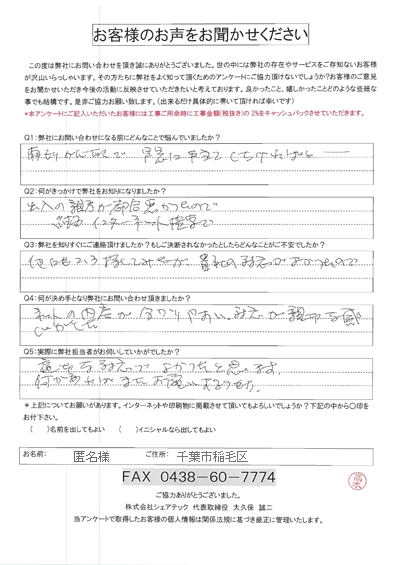 お客様のお声をお聞かせください
この度は弊社にお問い合わせを頂き誠にありがとうございました。世の中には弊社の存在やサービスをご存知ないお客様
が沢山いらっしゃいます。その方たちに弊社をよく知って頂くためのアンケートにご協力頂けないでしょうか?お客様のご意見
をお聞かせいただき今後の活動に反映させていただきたいと考えております。良かったこと、嬉しかったことどのような些細な
事でも結構です。是非ご協力お願い致します。(出来るだけ具体的に書いて頂ければ幸いです)
*本アンケートにご記入いただいたお客様には工事ご用命時に工事金額(税抜き)の 2%をキャッシュバックさせていただきます。
Q1:弊社にお問い合わせになる前にどんなことで悩んでいましたか?
Q2:何がきっかけで弊社をお知りになりましたか?
出入の親方が都合悪かったので
結局インターネット検索で
Q3:弊社を知りすぐにご連絡頂けましたか?もしご決断されなかったとしたらどんなことがご不安でしたか?
Q4:何が決め手となり弊社にお問い合わせ頂きましたか?
ネットの内容が分かりやすい。対応が親切な感
じがした
Q5:実際に弊社担当者がお伺いしていかがでしたか?
親切な対応でよかったと思います。
何かあればまたお願いします。
*上記についてお願いがあります。インターネットや印刷物に掲載させて頂いてもよろしいでしょうか?下記の中から○印を
お付下さい。
( )名前を出してもよい ( )イニシャルなら出してもよい
お名前: 匿名様 ご住所: 千葉市稲毛区
FAX 0438-60-7774
ご協力ありがとうございました。
株式会社シェアテック 代表取締役 大久保 誠二
当アンケートで取得したお客様の個人情報は関係法規に基づき厳正に管理いたします。